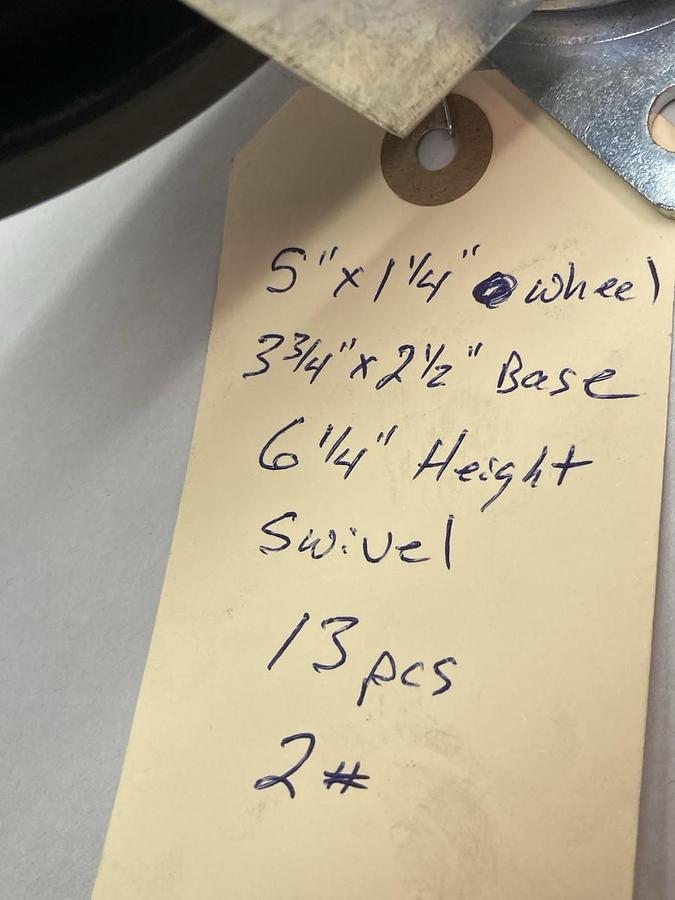 5" x 1 1/4" wheel
3 3/4" x 2 1/2" Base
6 1/4" Height
Swivel
13 pcs
2 #